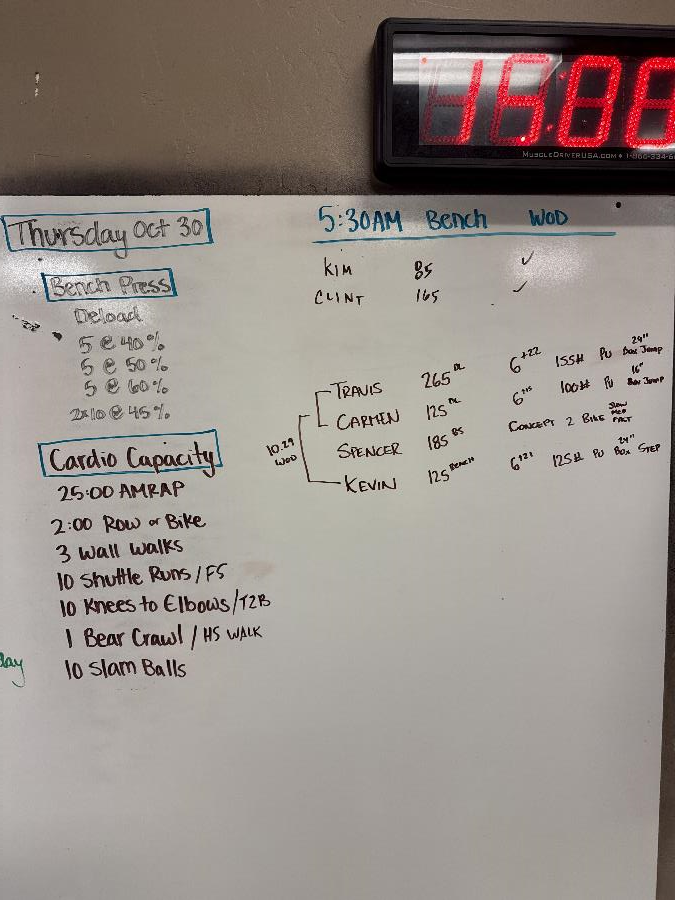 MUSCLEDRIVERUSA.COM • 1-866-334-6
Thursday Oct 30
Bench Press
Deload
5 @ 40%
5 @ 50%
5 @ 60%
2x10 @ 45%
Cardio Capacity
25:00 AMRAP
2:00 Row or Bike
3 Wall Walks
10 Shuttle Runs / FS
10 Knees to Elbows / T2B
1 Bear Crawl / HS WALK
10 Slam Balls
day
5:30AM Bench WOD
KIM 85 ✓
CLINT 165 ✓
10.29 WOD
TRAVIS 265 DL 6+22 155# PU 24" Box Jump
CARMEN 125 DL 6+15 100# PU 16" Box Jump
SPENCER 185 BS CONCEPT 2 BIKE SLOW MED FAST
KEVIN 125 BENCH 6+21 125# PU 24" BOX STEP